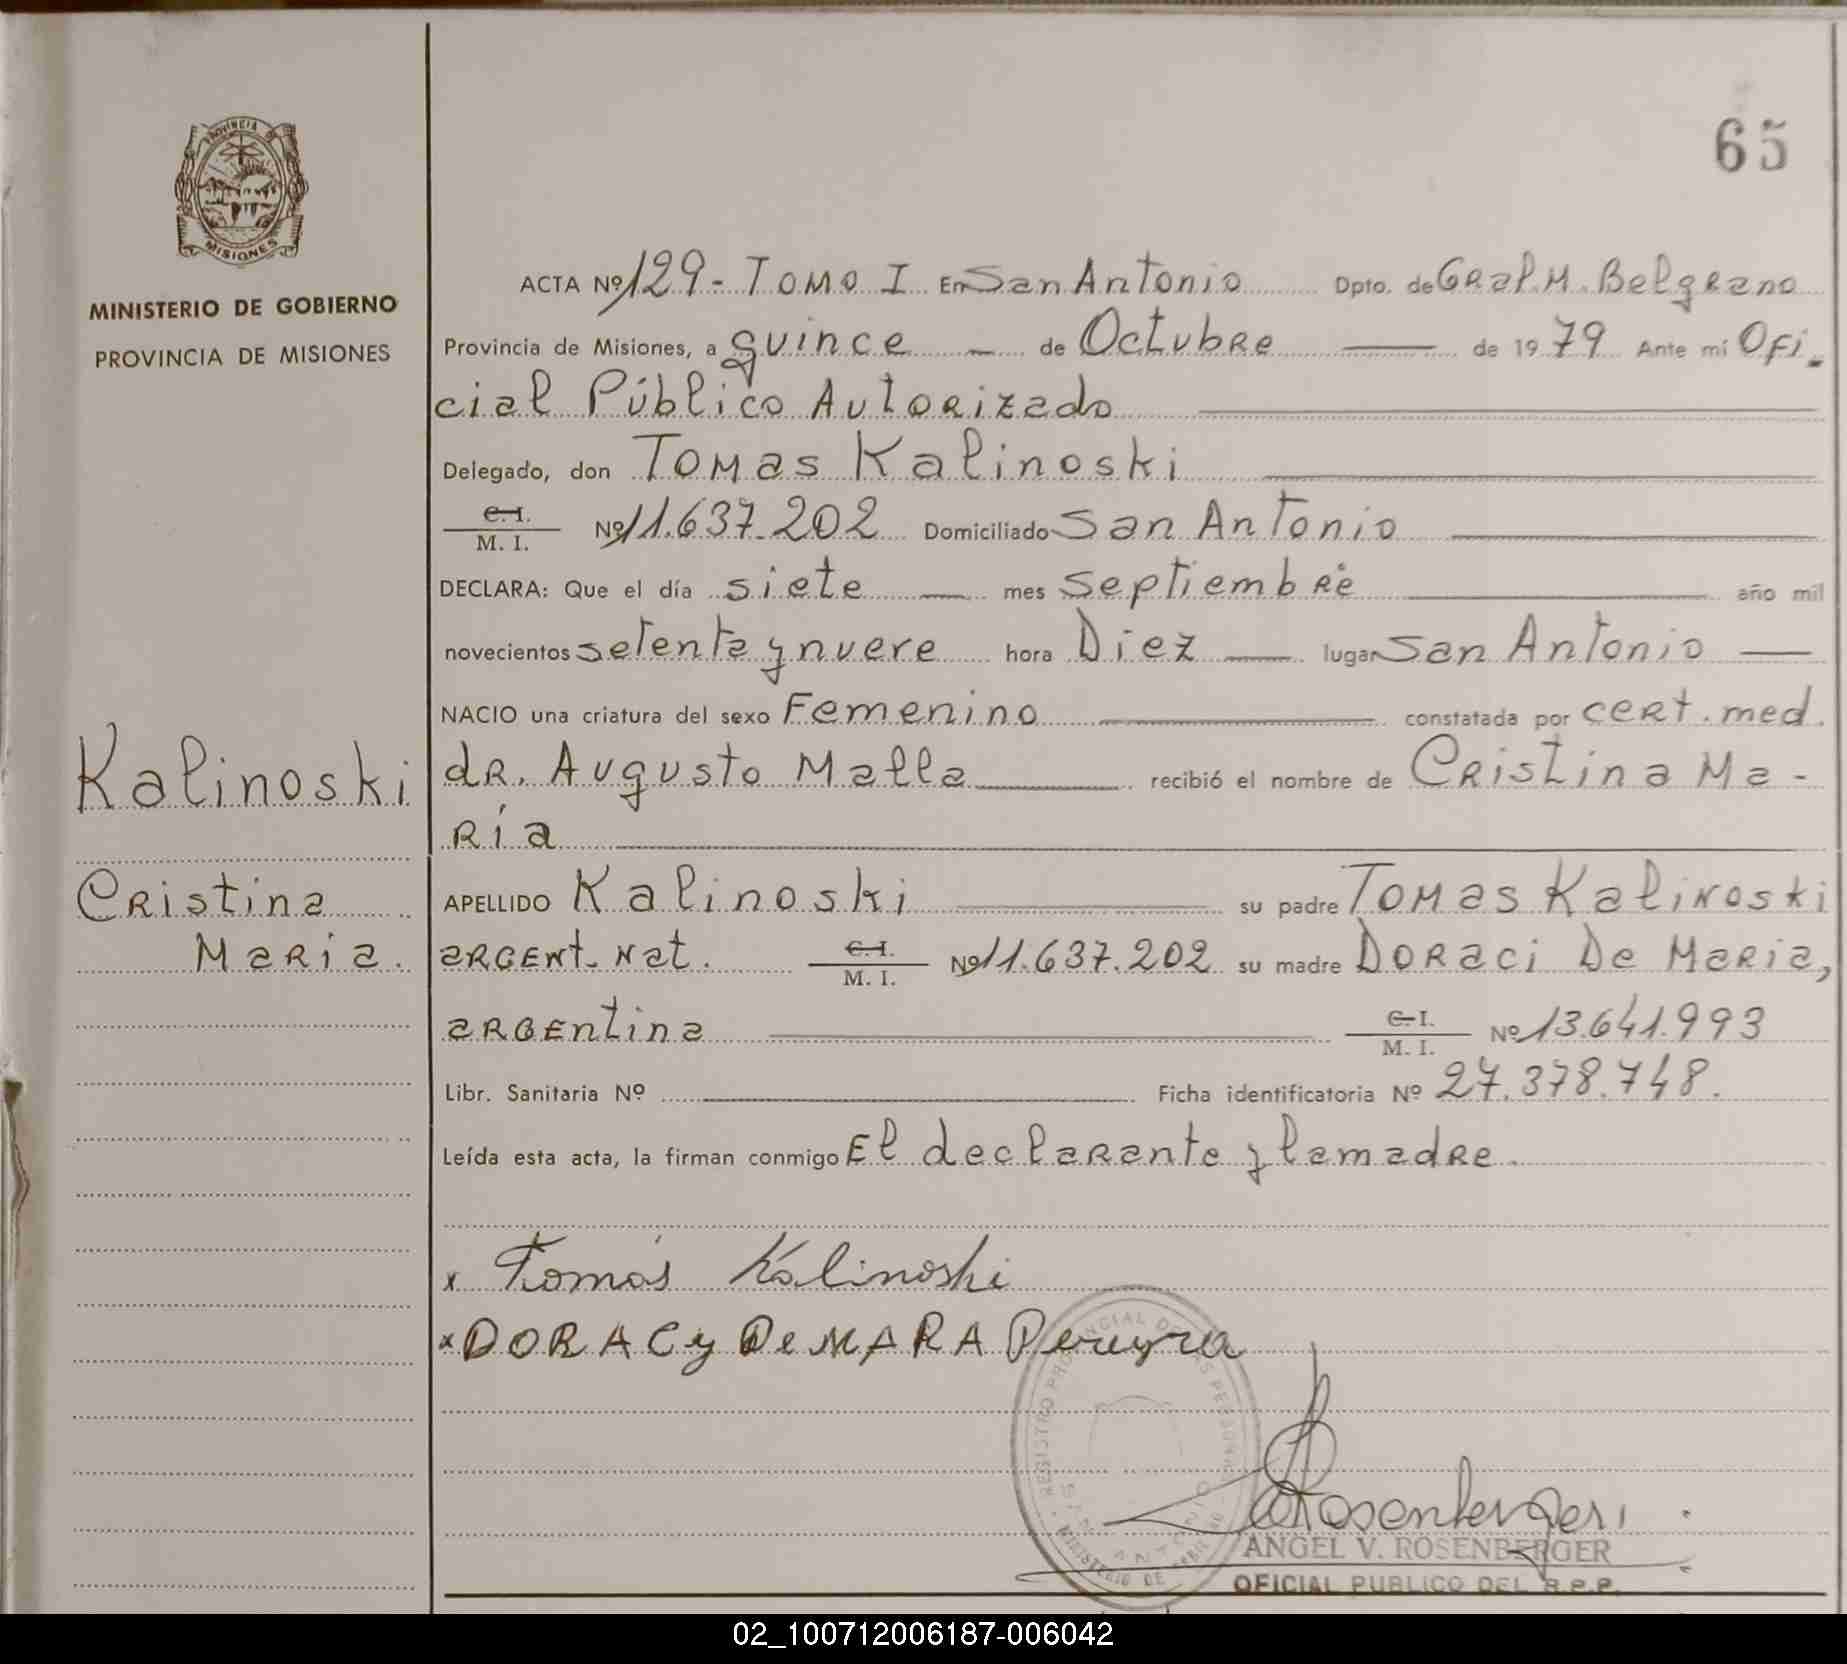 65
PROVINCIA DE
MISIONES
MINISTERIO DE GOBIERNO
PROVINCIA DE MISIONES
Kalinoski
Cristina
Maria.
ACTA Nº 129 - Tomo I En San Antonio Dpto. de Gral. M. Belgrano
Provincia de Misiones, a quince — de Octubre — de 1979 Ante mí Ofi-
cial Público Autorizado
Delegado, don Tomas Kalinoski
C. I.
M. I. Nº 11.637.202 Domiciliado San Antonio
DECLARA: Que el día siete — mes septiembre — año mil
novecientos setenta y nueve hora Diez — lugar San Antonio —
NACIO una criatura del sexo Femenino — constatada por cert. med.
dr. Augusto Matta — recibió el nombre de Cristina Ma-
ría
APELLIDO Kalinoski — su padre Tomas Kalinoski
argent. nat. C. I.
M. I. Nº 11.637.202 su madre Doraci De Maria,
argentina — C. I.
M. I. Nº 13.641.993
Libr. Sanitaria Nº — Ficha identificatoria Nº 27.378.748.
Leída esta acta, la firman conmigo El declarante y la madre.
x Tomás Kalinoski
x DORACy De MARA Pereyra
REGISTRO PROVINCIAL DE LAS PERSONAS
SAN ANTONIO
MINISTERIO DE
Rosenberger
ANGEL V. ROSENBERGER
OFICIAL PUBLICO DEL R.P.P.
02_100712006187-006042